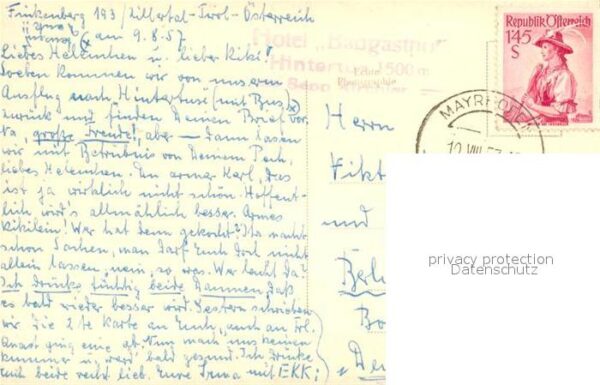 Finkenberg 193 / Zillertal-Tirol-Österreich
am 9.8.57
Liebes Helenchen u. lieber Kiki!
Soeben kommen wir von unserm
Ausflug nach Hintertux (mit Bus)
zurück und finden Deinen Brief vor
große Freude!, aber – dann lasen
wir mit Betrübnis von Deinem Pech,
liebes Helenchen. Ein armer Kerl, das
ist ja wirklich nicht schön. Hoffent-
lich wird's allmählich besser. Armes
Kikilein! Wer hat denn gekocht? Ihr macht
schon Sachen, man darf Euch doch nicht
allein lassen, nein, so was. Wer lacht da?
Ich drücke tüchtig beide Daumen, daß
es bald wieder besser wird. Gestern schrieben
wir die 2te Karte an Euch, auch an
ging eine ab. Nun macht uns keinen
Kummer u. werd' bald gesund. Ich drücke
Euch beide recht lieb. Eure Irma mit EKK;
Hotel „Badgasthof"
Hintertux 1500 m
Echte
Photographie
Republik Österreich
1.45
S
MAYRHOFEN
10.VIII.57
Herrn
Vikt
und
Berli
privacy protection
Datenschutz